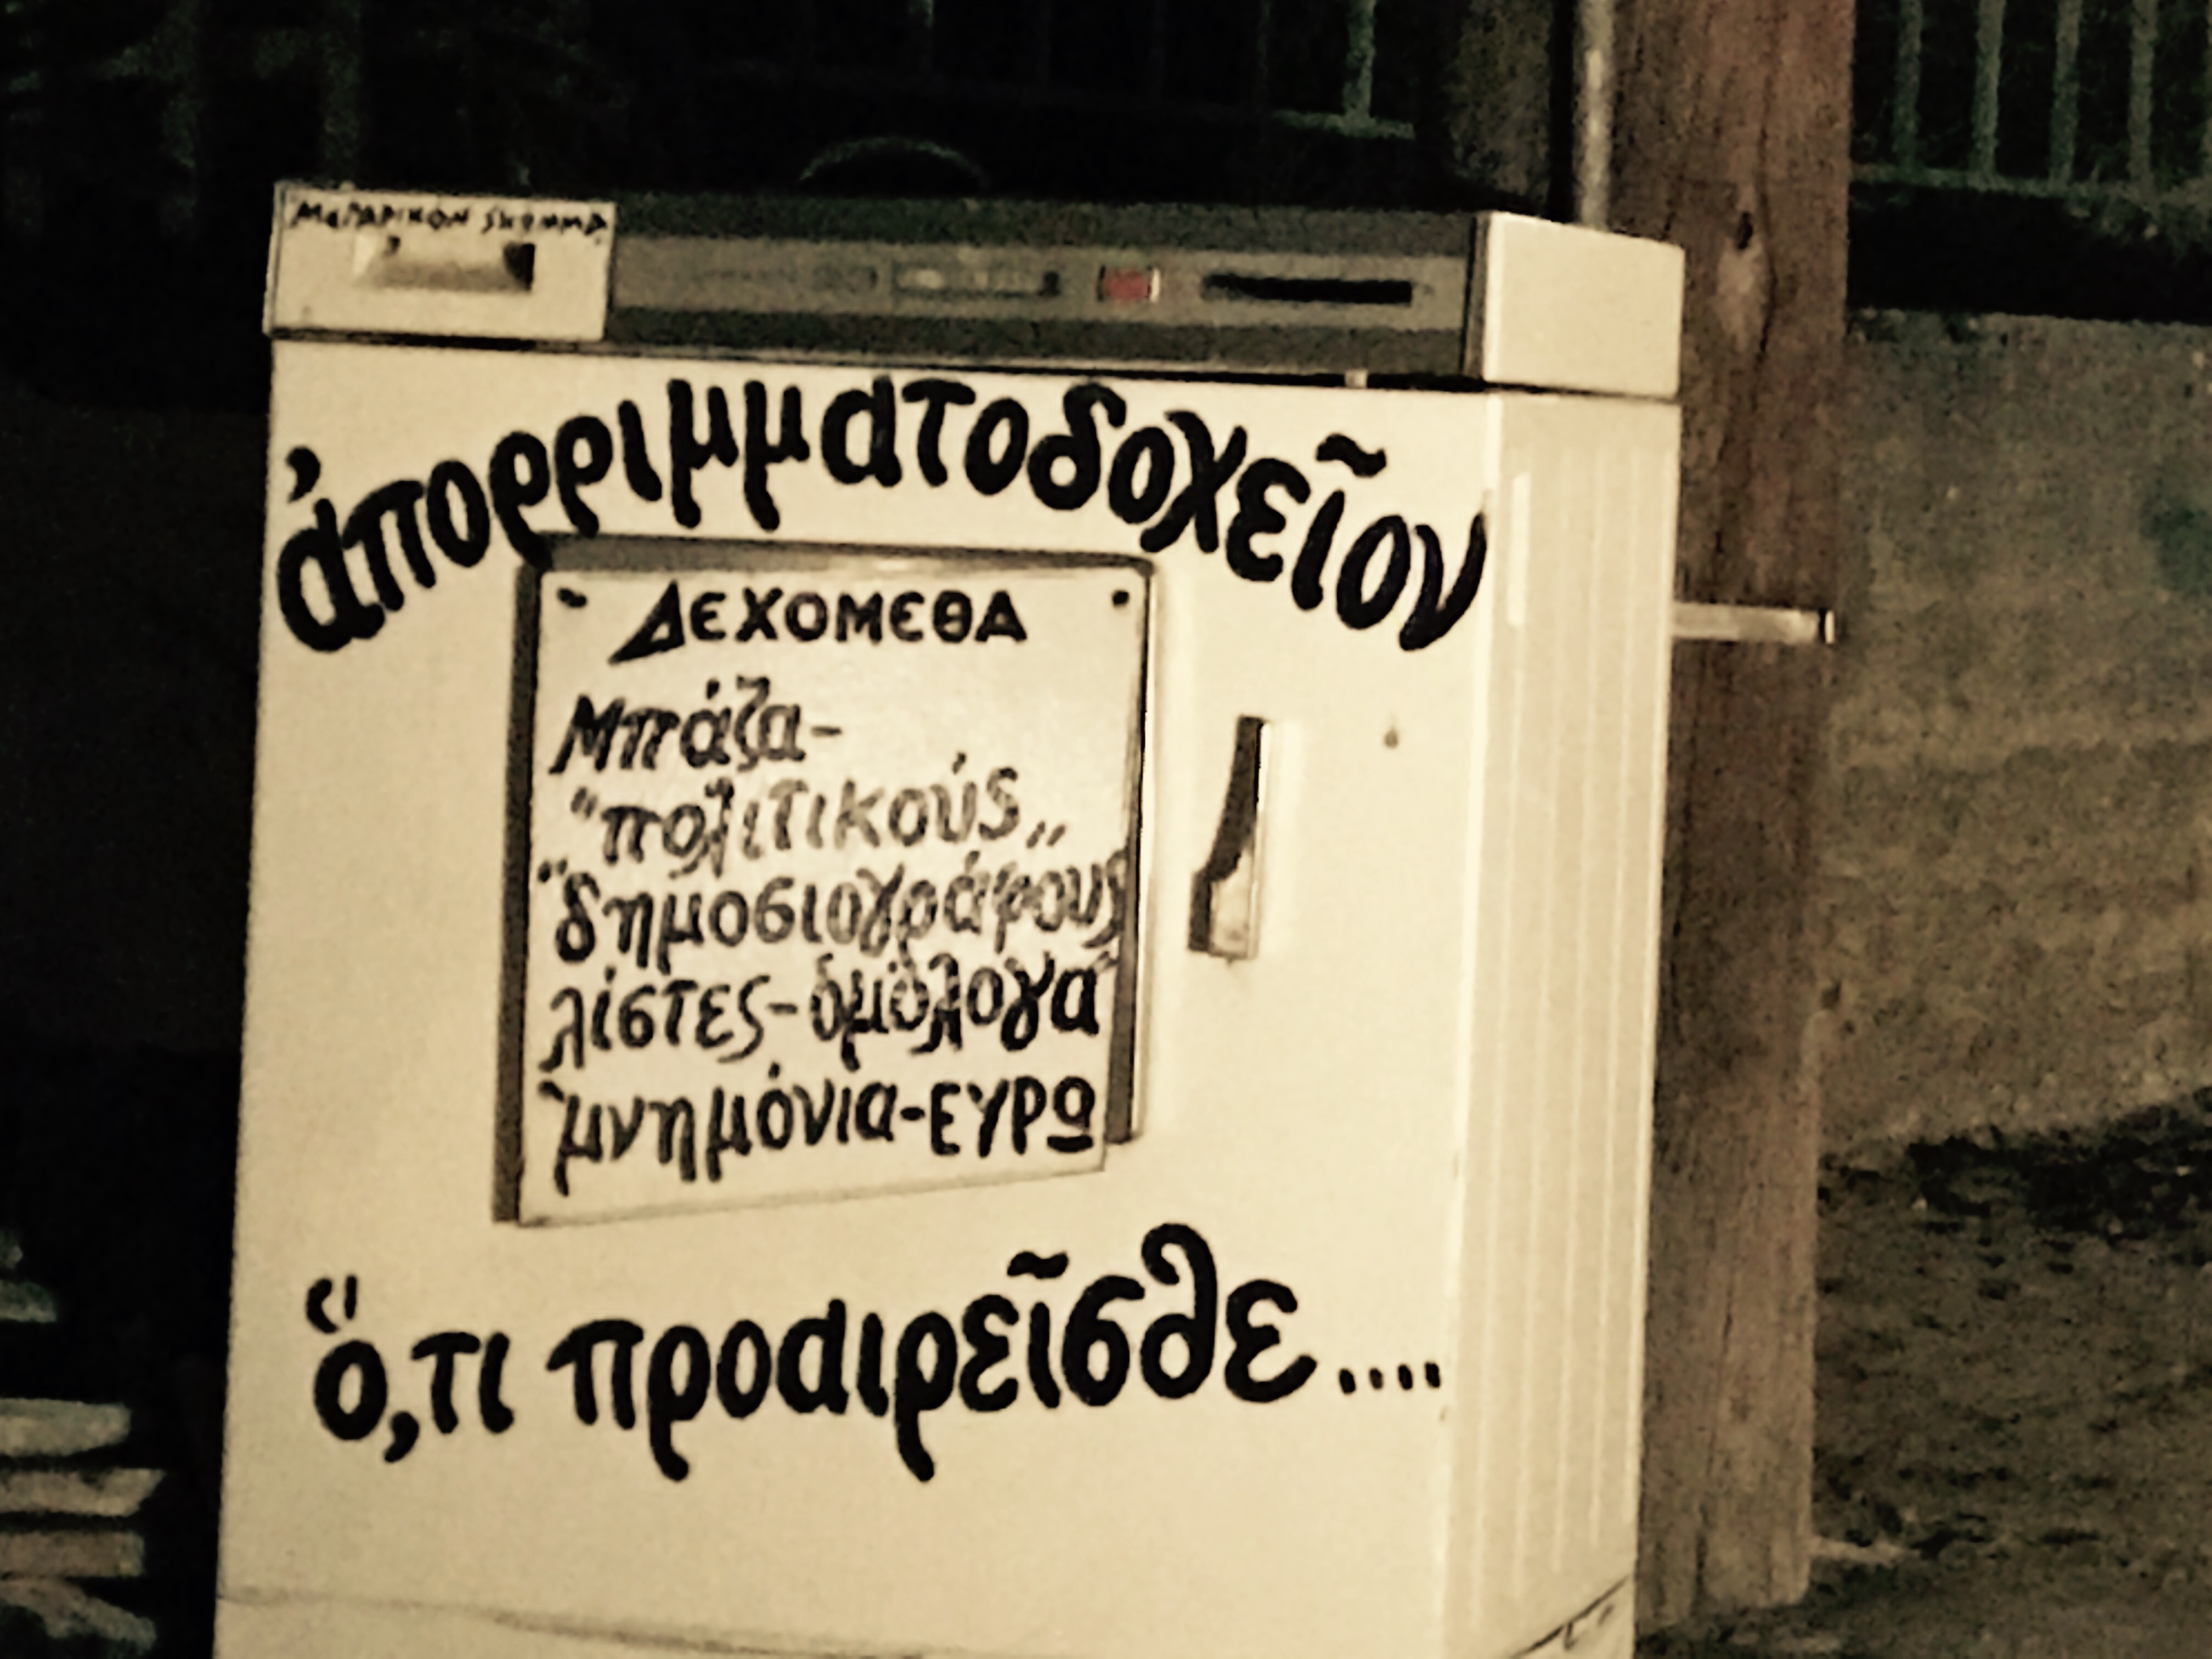 ΜεΓΑΡΙΚΟΝ SΚΩΜΜΑ
ἀπορριμματοδοχεῖον
ΔΕΧΟΜΕΘΑ
Μπάζα-
"πολιτικούς„
"δημοσιογράφους
λίστες-ὁμόλογα"
"μνημόνια-ΕΥΡΩ
ὅ,τι προαιρεῖσθε....